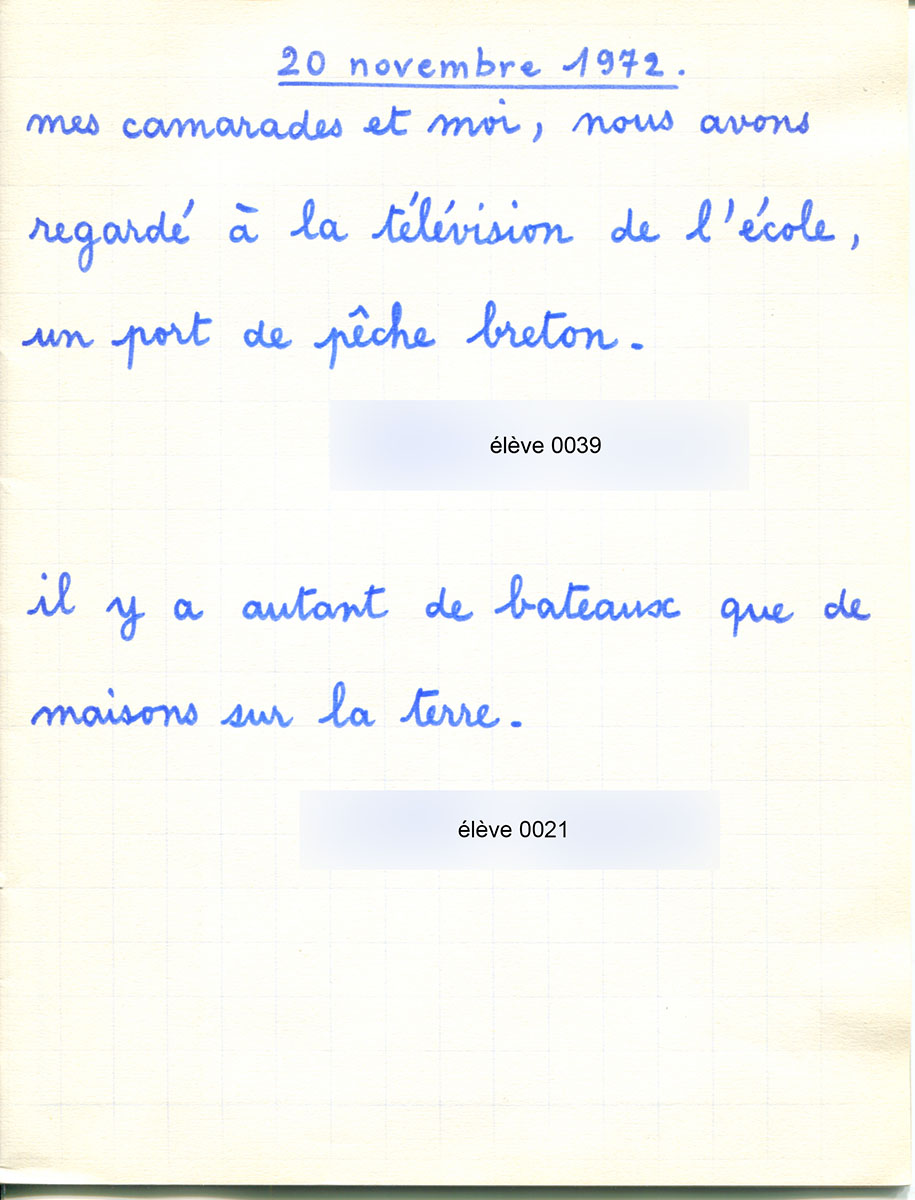 20 novembre 1972.
mes camarades et moi, nous avons
regardé à la télévision de l'école,
un port de pêche breton.
élève 0039
il y a autant de bateaux que de
maisons sur la terre.
élève 0021